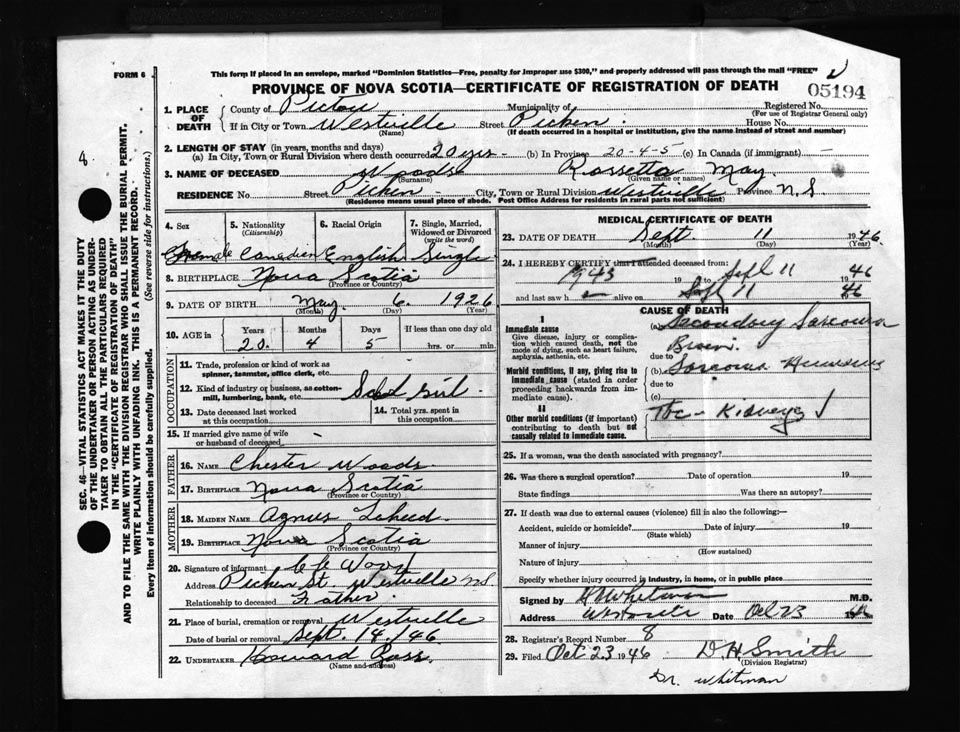 FORM 6
This form if placed in an envelope, marked "Dominion Statistics—Free, penalty for improper use $300," and properly addressed will pass through the mail "FREE"
PROVINCE OF NOVA SCOTIA—CERTIFICATE OF REGISTRATION OF DEATH
05194
1. PLACE OF DEATH
County of Pictou Municipality of Registered No.
(For use of Registrar General only)
If in City or Town Westville Street Picken House No.
(Name) (If death occurred in a hospital or institution, give the name instead of street and number)
2. LENGTH OF STAY (in years, months and days)
(a) In City, Town or Rural Division where death occurred 20 yrs (b) In Province 20-4-5 (c) In Canada (if immigrant) -
3. NAME OF DECEASED Woods Rossetta May
(Surname) (Given name or names)
RESIDENCE No. Street Picken City, Town or Rural Division Westville Province N.S
(Residence means usual place of abode. Post Office Address for residents in rural parts not sufficient)
4. Sex 5. Nationality (Citizenship) 6. Racial Origin 7. Single, Married, Widowed or Divorced (write the word)
Female Canadian English Single
8. BIRTHPLACE Nova Scotia
(Province or Country)
9. DATE OF BIRTH May 6 1926
(Month) (Day) (Year)
10. AGE in Years Months Days If less than one day old
20 4 5 hrs. or min.
OCCUPATION
11. Trade, profession or kind of work as spinner, teamster, office clerk, etc.
12. Kind of industry or business, as cotton-mill, lumbering, bank, etc.
13. Date deceased last worked at this occupation 14. Total yrs. spent in this occupation
15. If married give name of wife or husband of deceased -
FATHER
16. NAME Chester Woods
17. BIRTHPLACE Nova Scotia
(Province or Country)
MOTHER
18. MAIDEN NAME Agnus
19. BIRTHPLACE Nova Scotia
(Province or Country)
20. Signature of informant
Address Picken St. Westville NS
Relationship to deceased Father
21. Place of burial, cremation or removal Westville
Date of burial or removal Sept. 14/46
22. UNDERTAKER Howard Ross
(Name and address)
MEDICAL CERTIFICATE OF DEATH
23. DATE OF DEATH Sept. 11 1946
(Month) (Day) (Year)
24. I HEREBY CERTIFY that I attended deceased from:
1945 19 to Sept 11 1946
and last saw h alive on Sept 11 46
CAUSE OF DEATH
I
Immediate cause
Give disease, injury or complication which caused death, not the mode of dying, such as heart failure, asphyxia, asthenia, etc.
(a) Secondary Sarcoma
due to
Morbid conditions, if any, giving rise to immediate cause (stated in order proceeding backwards from immediate cause).
(b) Sarcoma
due to
(c)
II
Other morbid conditions (if important) contributing to death but not causally related to immediate cause.
Tbc - Kidneys
25. If a woman, was the death associated with pregnancy?
26. Was there a surgical operation? Date of operation 19
State findings Was there an autopsy?
27. If death was due to external causes (violence) fill in also the following:—
Accident, suicide or homicide? Date of injury 19
(State which)
Manner of injury
(How sustained)
Nature of injury
Specify whether injury occurred in industry, in home, or in public place
Signed by Whitman M.D.
Address Westville Date Oct 23
28. Registrar's Record Number 8
29. Filed Oct 23 1946 D H Smith
(Division Registrar)
Dr. Whitman
SEC. 46—VITAL STATISTICS ACT MAKES IT THE DUTY
OF THE UNDERTAKER OR PERSON ACTING AS UNDER-
TAKER TO OBTAIN ALL THE PARTICULARS REQUIRED
IN THE "CERTIFICATE OF REGISTRATION OF DEATH"
AND TO FILE THE SAME WITH THE DIVISION REGISTRAR WHO SHALL ISSUE THE BURIAL PERMIT.
WRITE PLAINLY WITH UNFADING INK. THIS IS A PERMANENT RECORD.
Every item of information should be carefully supplied. (See reverse side for instructions.)